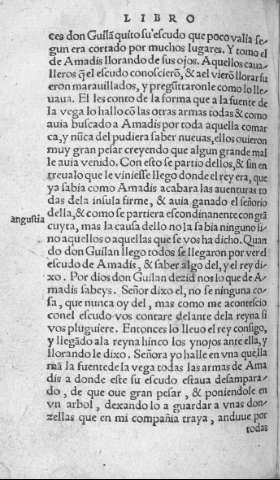 LIBRO
ces don Guilã quito su escudo que poco valia se-
gun era cortado por muchos lugares. Y tomo el
de Amadis llorando de sus ojos. Aquellos caua-
lleros q̃l escudo conoscierõ, & a el vierõ llorar fu
eron marauillados, y pregũtaronle como lo lle-
uaua. El les conto de la forma que a la fuente de
la vega lo hallo cõ las otras armas todas & como
auia buscado a Amadis por toda aquella comar
ca, y nũca del pudiera saber nueuas, ellos ouieron
muy gran pesar creyendo que algun grande mal
le auia venido. Con esto se partio dellos, & sin en
treualo que le viniesse llego donde el rey era, que
ya sabia como Amadis acabara las auenturas to
das dela insula firme, & auia ganado el señorio
della, & como se partiera escondinanente con grã
angustia
cuyta, mas la causa dello no la sabia ninguno si-
no aquellos o aquellas que se vos ha dicho. Quan
do don Guilan llego todos se llegaron por ver el
escudo de Amadis, & saber algo del, y el rey di-
xo. Por dios don Guilan dezid nos lo que de A-
madis sabeys. Señor dixo el, no se ninguna co-
sa, que nunca oy del, mas como me acontescio
con el escudo vos contare delante dela reyna si
vos pluguiere. Entonces lo lleuo el rey consigo,
y llegãdo ala reyna hinco los ynojos ante ella, y
llorando le dixo. Señora yo halle en vna que lla
mã la fuente de la vega todas las armas de Ama
dis a donde este su escudo estaua desampara-
do, de que oue gran pesar, & poniendole en
vn arbol, dexando lo a guardar a vnas don-
zellas que en mi compañia traya, anduue por
todas